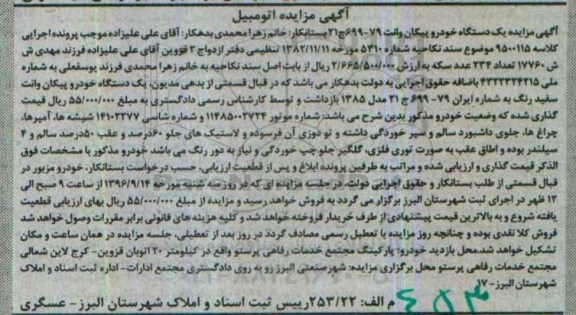 آگهی مزایده اتومبیل
آگهی مزایده یک دستگاه خودرو پیکان وانت ۷۹-۶۹۹ج۲۱ بستانکار: خانم زهرا محمدی بدهکار: آقای علی علیزاده موجب پرونده اجرایی
کلاسه ۹۵۰۰۱۱۵ موضوع سند نکاحیه شماره ۵۳۱۰ مورخه ۱۳۸۲/۱۱/۱۱ تنظیمی دفتر ازدواج ۳ قزوین آقای علی علیزاده فرزند مهدی ش
ش ۱۷۷۶۰ تعداد ۲۳۴ عدد سکه به ارزش ۲/۶۶۵/۵۰۰/۰۰۰ ریال از بابت اصل سند نکاحیه به خانم زهرا محمدی فرزند یوسفعلی به شماره
ملی ۴۳۲۲۳۲۴۲۱۵ باضافه حقوق اجرایی به دولت بدهکار می باشد که در قبال قسمتی از بدهی مدیون، یک دستگاه خودرو پیکان وانت
سفید رنگ به شماره ایران ۷۹- ۶۹۹ ج ۲۱ مدل ۱۳۸۵ بازداشت و توسط کارشناس رسمی دادگستری به مبلغ ۵۵/۰۰۰/۰۰۰ ریال قیمت
گذاری شده که وضعیت خودرو مذکور بدین شرح می باشد: شماره موتور ۱۱۴۸۵۰۰۳۷۲۴ و شماره شاسی ۱۴۱۰۲۳۷۷ شیشه ها، آمپرها،
چراغ ها، جلوی داشبورد سالم و سپر خوردگی داشته و تو دوزی آن فرسوده و لاستیک های جلو ۶۰درصد و عقب ۵۰درصد سالم و ۴
سیلندر بوده و اطاق عقب به صورت توری فلزی، گلگیر جلو چپ خوردگی و نیاز به دور رنگ می باشد. خودرو مذکور با مشخصات فوق
الذکر قیمت گذاری و ارزیابی شده و مراتب به طرفین پرونده ابلاغ و پس از قطعیت ارزیابی، حسب درخواست بستانکار، خودرو مزبور در
قبال قسمتی از طلب بستانکار و حقوق اجرایی دولت، در جلسه مزایده ای که در روز سه شنبه مورخه ۱۳۹۶/۹/۱۴ از ساعت ۹ صبح الی
۱۲ ظهر در اجرای ثبت شهرستان البرز برگزار می گردد به فروش خواهد رسید و مزایده از مبلغ ۵۵/۰۰۰/۰۰۰ ریال بهای ارزیابی قطعیت
یافته شروع و به بالاترین قیمت پیشنهادی از طرف خریدار فروخته خواهد شد و کلیه هزینه های قانونی برابر مقررات وصول خواهد شد
فروش کلا نقدی بوده و چنانچه روز مزایده با تعطیل رسمی مصادف گردد در روز بعد از تعطیلی، جلسه مزایده در همان ساعت و مکان
تشکیل خواهد شد. محل بازدید خودرو: پارکینگ مجتمع خدمات رفاهی پرستو واقع در کیلومتر ۲۰ اتوبان قزوین- کرج لاین شمالی
مجتمع خدمات رفاهی پرستو محل برگزاری مزایده: شهرصنعتی البرز رو به روی دادگستری مجتمع ادارات- اداره ثبت اسناد و املاک
شهرستان البرز- ۱۷
م الف: ۲۵۳/۲۲رییس ثبت اسناد و املاک شهرستان البرز- عسگری